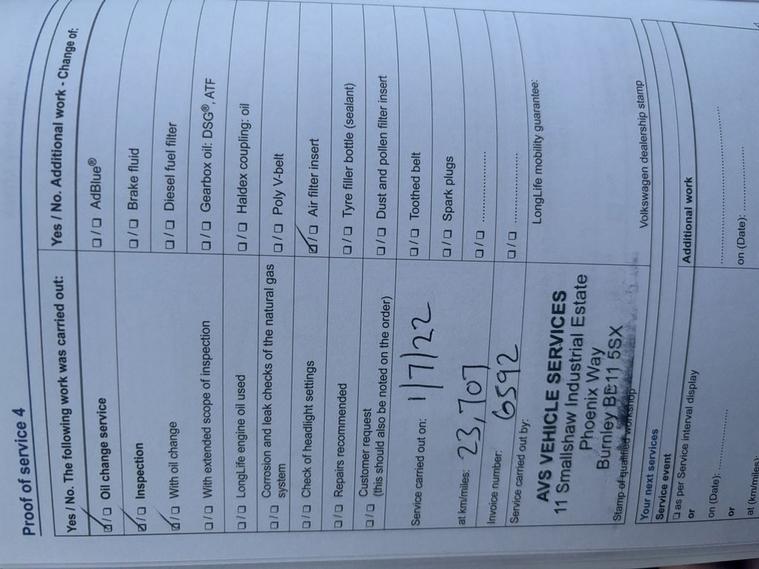 Proof of service 4
Yes / No. The following work was carried out:
☑ / ☐ Oil change service
☑ / ☐ Inspection
☑ / ☐ With oil change
☐ / ☐ With extended scope of inspection
☐ / ☐ LongLife engine oil used
Corrosion and leak checks of the natural gas
☐ / ☐ system
☐ / ☐ Check of headlight settings
☐ / ☐ Repairs recommended
Customer request
☐ / ☐ (this should also be noted on the order)
Service carried out on: 1/7/22
at km/miles: 23,707
Invoice number: 6592
Service carried out by:
AVS VEHICLE SERVICES
11 Smallshaw Industrial Estate
Phoenix Way
Burnley BE11 5SX
Stamp of qualified workshop
Yes / No. Additional work - Change of:
☐ / ☐ AdBlue®
☐ / ☐ Brake fluid
☐ / ☐ Diesel fuel filter
☐ / ☐ Gearbox oil: DSG®, ATF
☐ / ☐ Haldex coupling: oil
☐ / ☐ Poly V-belt
☑ / ☐ Air filter insert
☐ / ☐ Tyre filler bottle (sealant)
☐ / ☐ Dust and pollen filter insert
☐ / ☐ Toothed belt
☐ / ☐ Spark plugs
☐ / ☐ ....................
☐ / ☐ ....................
LongLife mobility guarantee:
Volkswagen dealership stamp
Your next services
Service event
☐ as per Service interval display
or
on (Date): ....................
or
at (km/miles):
Additional work
....................
on (Date): ....................